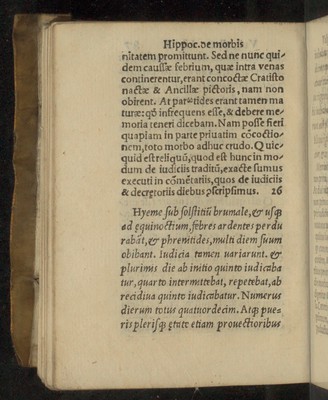 Hippoc.de morbis
nitatem promittunt. Sed ne nunc qui-
dem caussæ febrium, quæ intra venas
continerentur, erant concoctæ Cratisto
nactæ & Ancillæ pictoris, nam non
obirent. At parotides erant tamen ma
turæ: qd infrequens esse, & debere me-
moria teneri dicebam. Nam posse fieri
quapiam in parte priuatim cōcoctio-
nem, toto morbo adhuc crudo. Quic-
quid est reliquū, quod est hunc in mo-
dum de iudiciis traditū, exacte sumus
executi in cōmētariis, quos de iudiciis
& decretoriis diebus pscripsimus. 26
Hyeme sub solstitiū brumale, & usq;
ad ęquinoctium, febres ardentes perdu
rabāt, & phrenitides, multi diem suum
obibant. Iudicia tamen uariarunt. &
plurimis die ab initio quinto iudicaba
tur, quarto intermittebat, repetebat, ab
recidiua quinto iudicabatur. Numerus
dierum totus quatuordecim. Atq; pue-
ris plerisq; ętate etiam prouectioribus